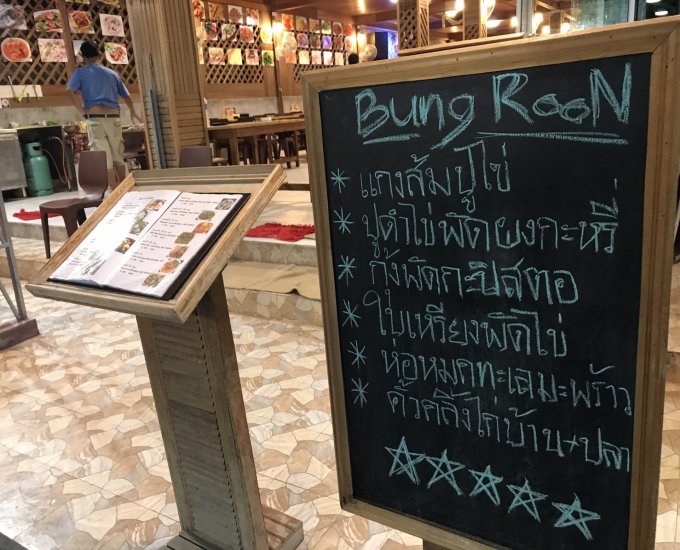 Bung RooN
* แกงส้มปูไข่
* ปูดำไข่ผัดผงกะหรี่
* กุ้งผัดกะปิสตอ
* ใบเหรียงผัดไข่
* ห่อหมกทะเลมะพร้าว
* คั่วกลิ้งไก่บ้าน+ปลา